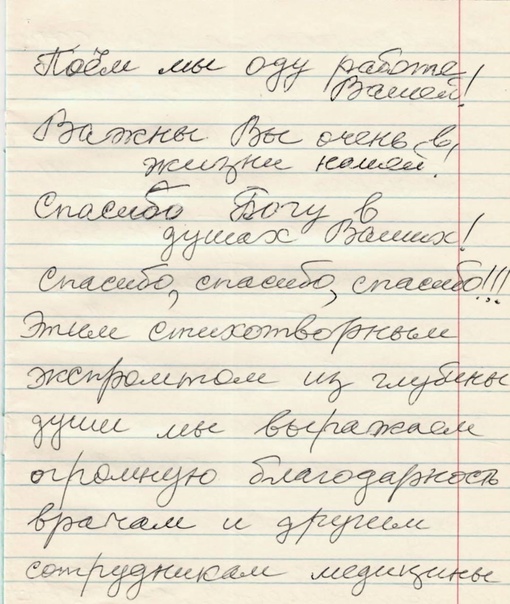 Поём мы оду работе
Вашей!
Важны Вы очень в
жизни нашей!
Спасибо Богу в
душах Ваших!
Спасибо, спасибо, спасибо!!!
Этим стихотворным
экспромтом из глубины
души мы выражаем
огромную благодарность
врачам и другим
сотрудникам медицины